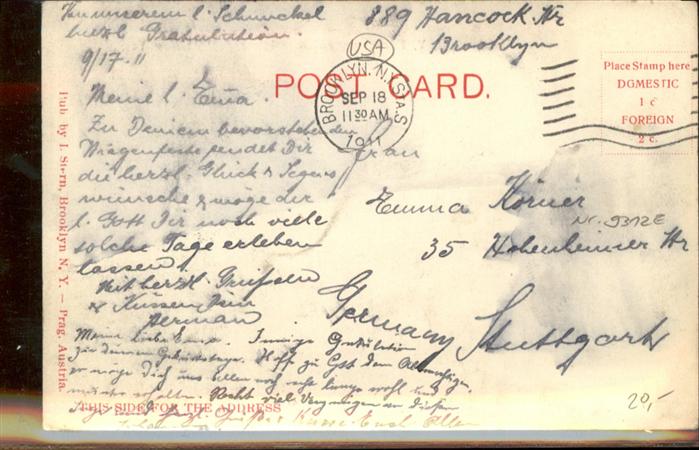 unserem l. Schnuckel
herzl. Gratulation.
9/17. 11
389 Hancock Str
Brooklyn
USA
POST CARD.
BROOKLYN, N.Y. STA. S
SEP 18
11 30 AM
1911
Place Stamp here
DOMESTIC
1 c
FOREIGN
2 c.
Meine l. Emma.
Zu Deinem bevorstehenden
Wiegenfeste sendet Dir
die herzl. Glück & Segens
wünsche & möge der
l. Gott Dir noch viele
solche Tage erleben
lassen!
Mit herzl. Grüssen
& Küssen Dein
Herman
Frau
Emma Körner
Nr. 9312E
35 Hohenheimer Str
Stuttgart
Germany
Meine liebe Emma. Innige Gratulation
zu deinem Geburtstage. Hoff zu Gott dem Allmächtigen,
er möge Dich uns allen noch recht lange wohl und
munter erhalten. Recht viel Vergnügen an diesem
herzl. Grüße & Küsse Euch Allen
THIS SIDE FOR THE ADDRESS
Pub by I. Stern, Brooklyn N. Y. — Prag, Austria.
20,-